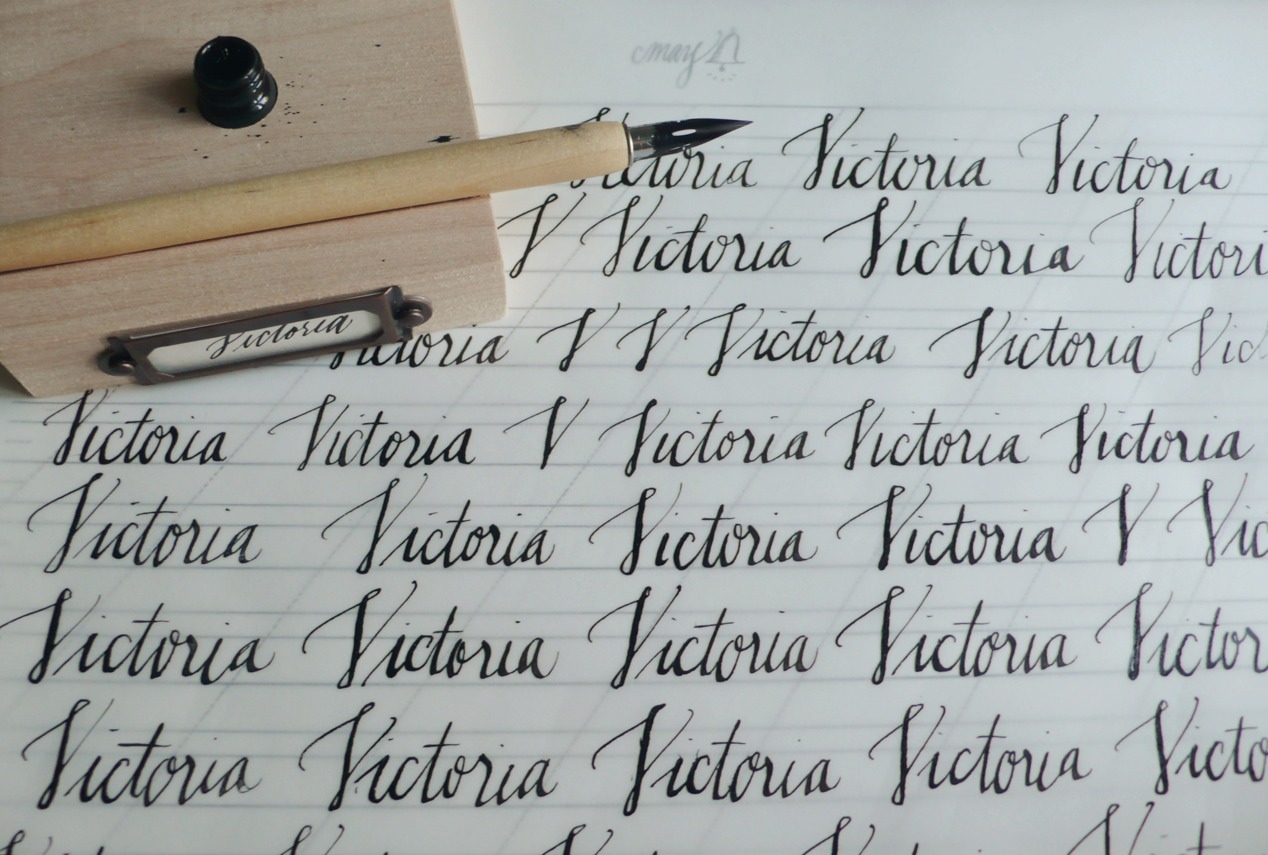 may 21
Victoria Victoria Victoria
V Victoria Victoria Victori
Victoria
Victoria V V Victoria Victoria Vic
Victoria Victoria V Victoria Victoria Victoria
Victoria Victoria Victoria Victoria V Vic
Victoria Victoria Victoria Victoria Victor
Victoria Victoria Victoria Victoria Victo